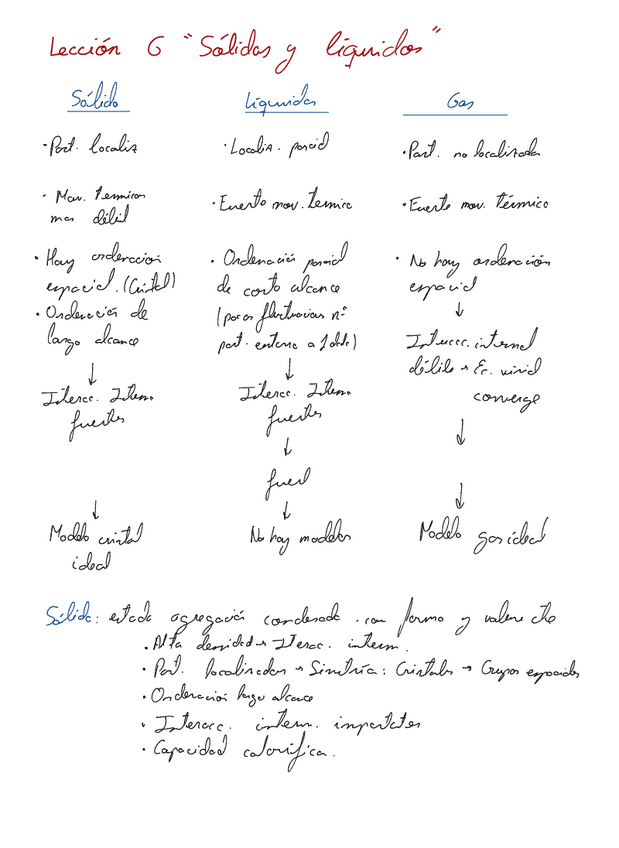 Lección 6 "Sólidos y líquidos"
Sólido
Líquidos
Gas
· Part. localiz
· Localiz. parcial
· Part. no localizada
· Mov. termicos
mas débil
· Fuerte mov. termico
· Fuerte mov. térmico
· Hay ordenacion
espacial. (Cristal)
· Ordenación de
largo alcance
· Ordenación parcial
de corto alcance
(pocas fluctuacias nº
part. entorno a 1 dada)
· No hay ordenación
espacial
↓
Interacc. intermol
débiles → Ec. virial
converge
↓
Interacc. Interm.
fuertes
↓
Interacc. Interm.
fuertes
↓
↓
fuerd
↓
Modelo cristal
ideal
↓
No hay modelos
↓
Modelo gas ideal
Sólido: estado agregación condensado. con forma y volumen cte
· Alta densidad → Iterac. interm.
· Part. localizadas → Simetría: Cristales → Grupos espaciales
· Ordenación largo alcance
· Interacc. interm. importates
· Capacidad calorífica.